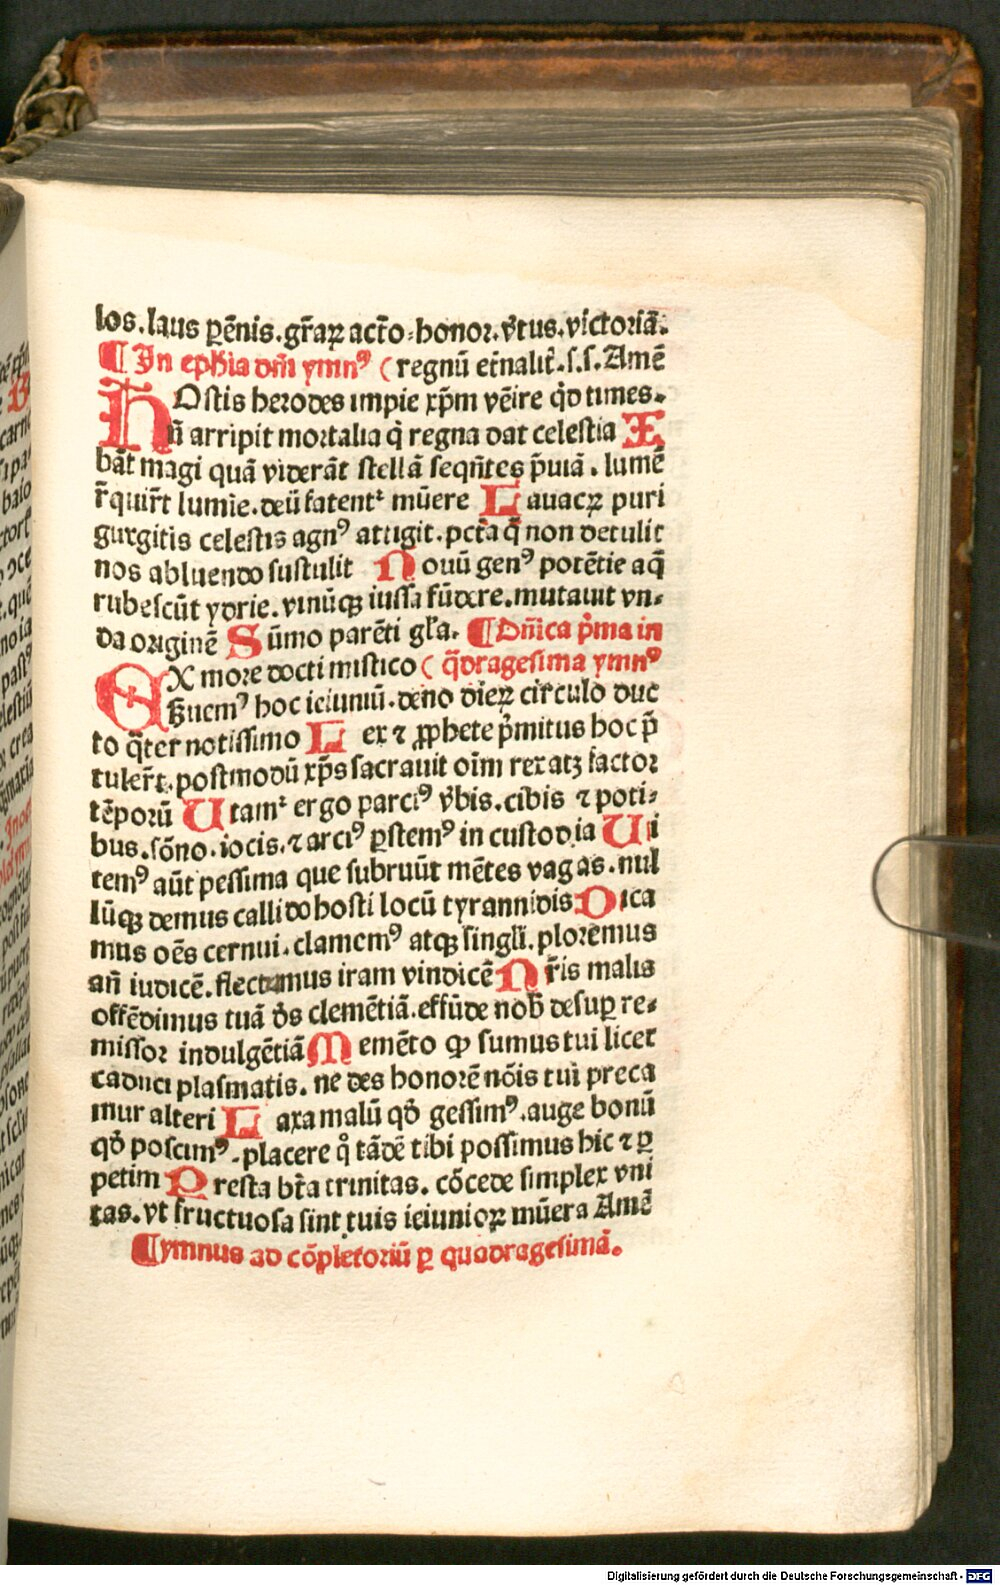 los. laus ꝑẽnis. gr̃aꝝ acto᷒. honoꝛ. v̾tus. victoriã.
¶ In eph̃ia dñi ymnꝰ ( regnũ et̾nalit̾. s. s. Amẽ
HOstis herodes impie xp̃m vẽire qd̾ times.
ñ arripit moꝛtalia q̾ regna dat celestia I
bãt magi quã viderãt stellã seqñtes p̾uiã. lumẽ
r̃quir̃t lumie. deũ fatent᷒ mũere Lauacꝝ puri
gurgitis celestis agnꝰ attigit. pct̃a q̃ non detulit
nos abluendo sustulit Nouũ genꝰ potẽtie aq̃
rubescũt ydrie. vinũqꝫ iussa fũdere. mutauit vn-
da oꝛiginẽ Sũmo parẽti gl̃a. ¶ Dñica p̾ma in
EX moꝛe docti mistico ( q̃dragesima ymnꝰ
s̾uemꝰ hoc ieiuniũ. deno dieꝝ circulo duc
to q̃ter notissimo Lex ⁊ ꝓphete p̾mitus hoc p̃
tuler̃t. postmodũ xp̃s sacrauit oim rex atꝫ factoꝛ
tẽpoꝛũ Utam᷒ ergo parciꝰ v̾bis. cibis ⁊ poti-
bus. sõno. iocis. ⁊ arciꝰ ꝑstemꝰ in custodia Ui
temꝰ aũt pessima que subruũt mẽtes vagas. nul
lũqꝫ demus callido hosti locũ tyrannidis Dica
mus oẽs cernui. clamemꝰ atqꝫ singli. ploꝛemus
añ iudicẽ. flectamus iram vindicẽ Nr̃is malis
offẽdimus tuã ds̾ clemẽtiã. effũde nob̾ desuꝑ re-
missoꝛ indulgẽtiã Memẽto ꝙ sumus tui licet
caduci plasmatis. ne des honoꝛẽ nõis tui preca
mur alteri Laxa malũ qd̾ gessimꝰ. auge bonũ
qd̾ poscimꝰ. placere qͦ tãdẽ tibi possimus hic ⁊ ꝑ
petim Presta bt̃a trinitas. cõcede simplex vni
tas. vt fructuosa sint tuis ieiunioꝝ mũera Amẽ
¶ ymnus ad cõpletoꝛiũ ꝑ quadragesimã.
Digitalisierung gefördert durch die Deutsche Forschungsgemeinschaft - DFG